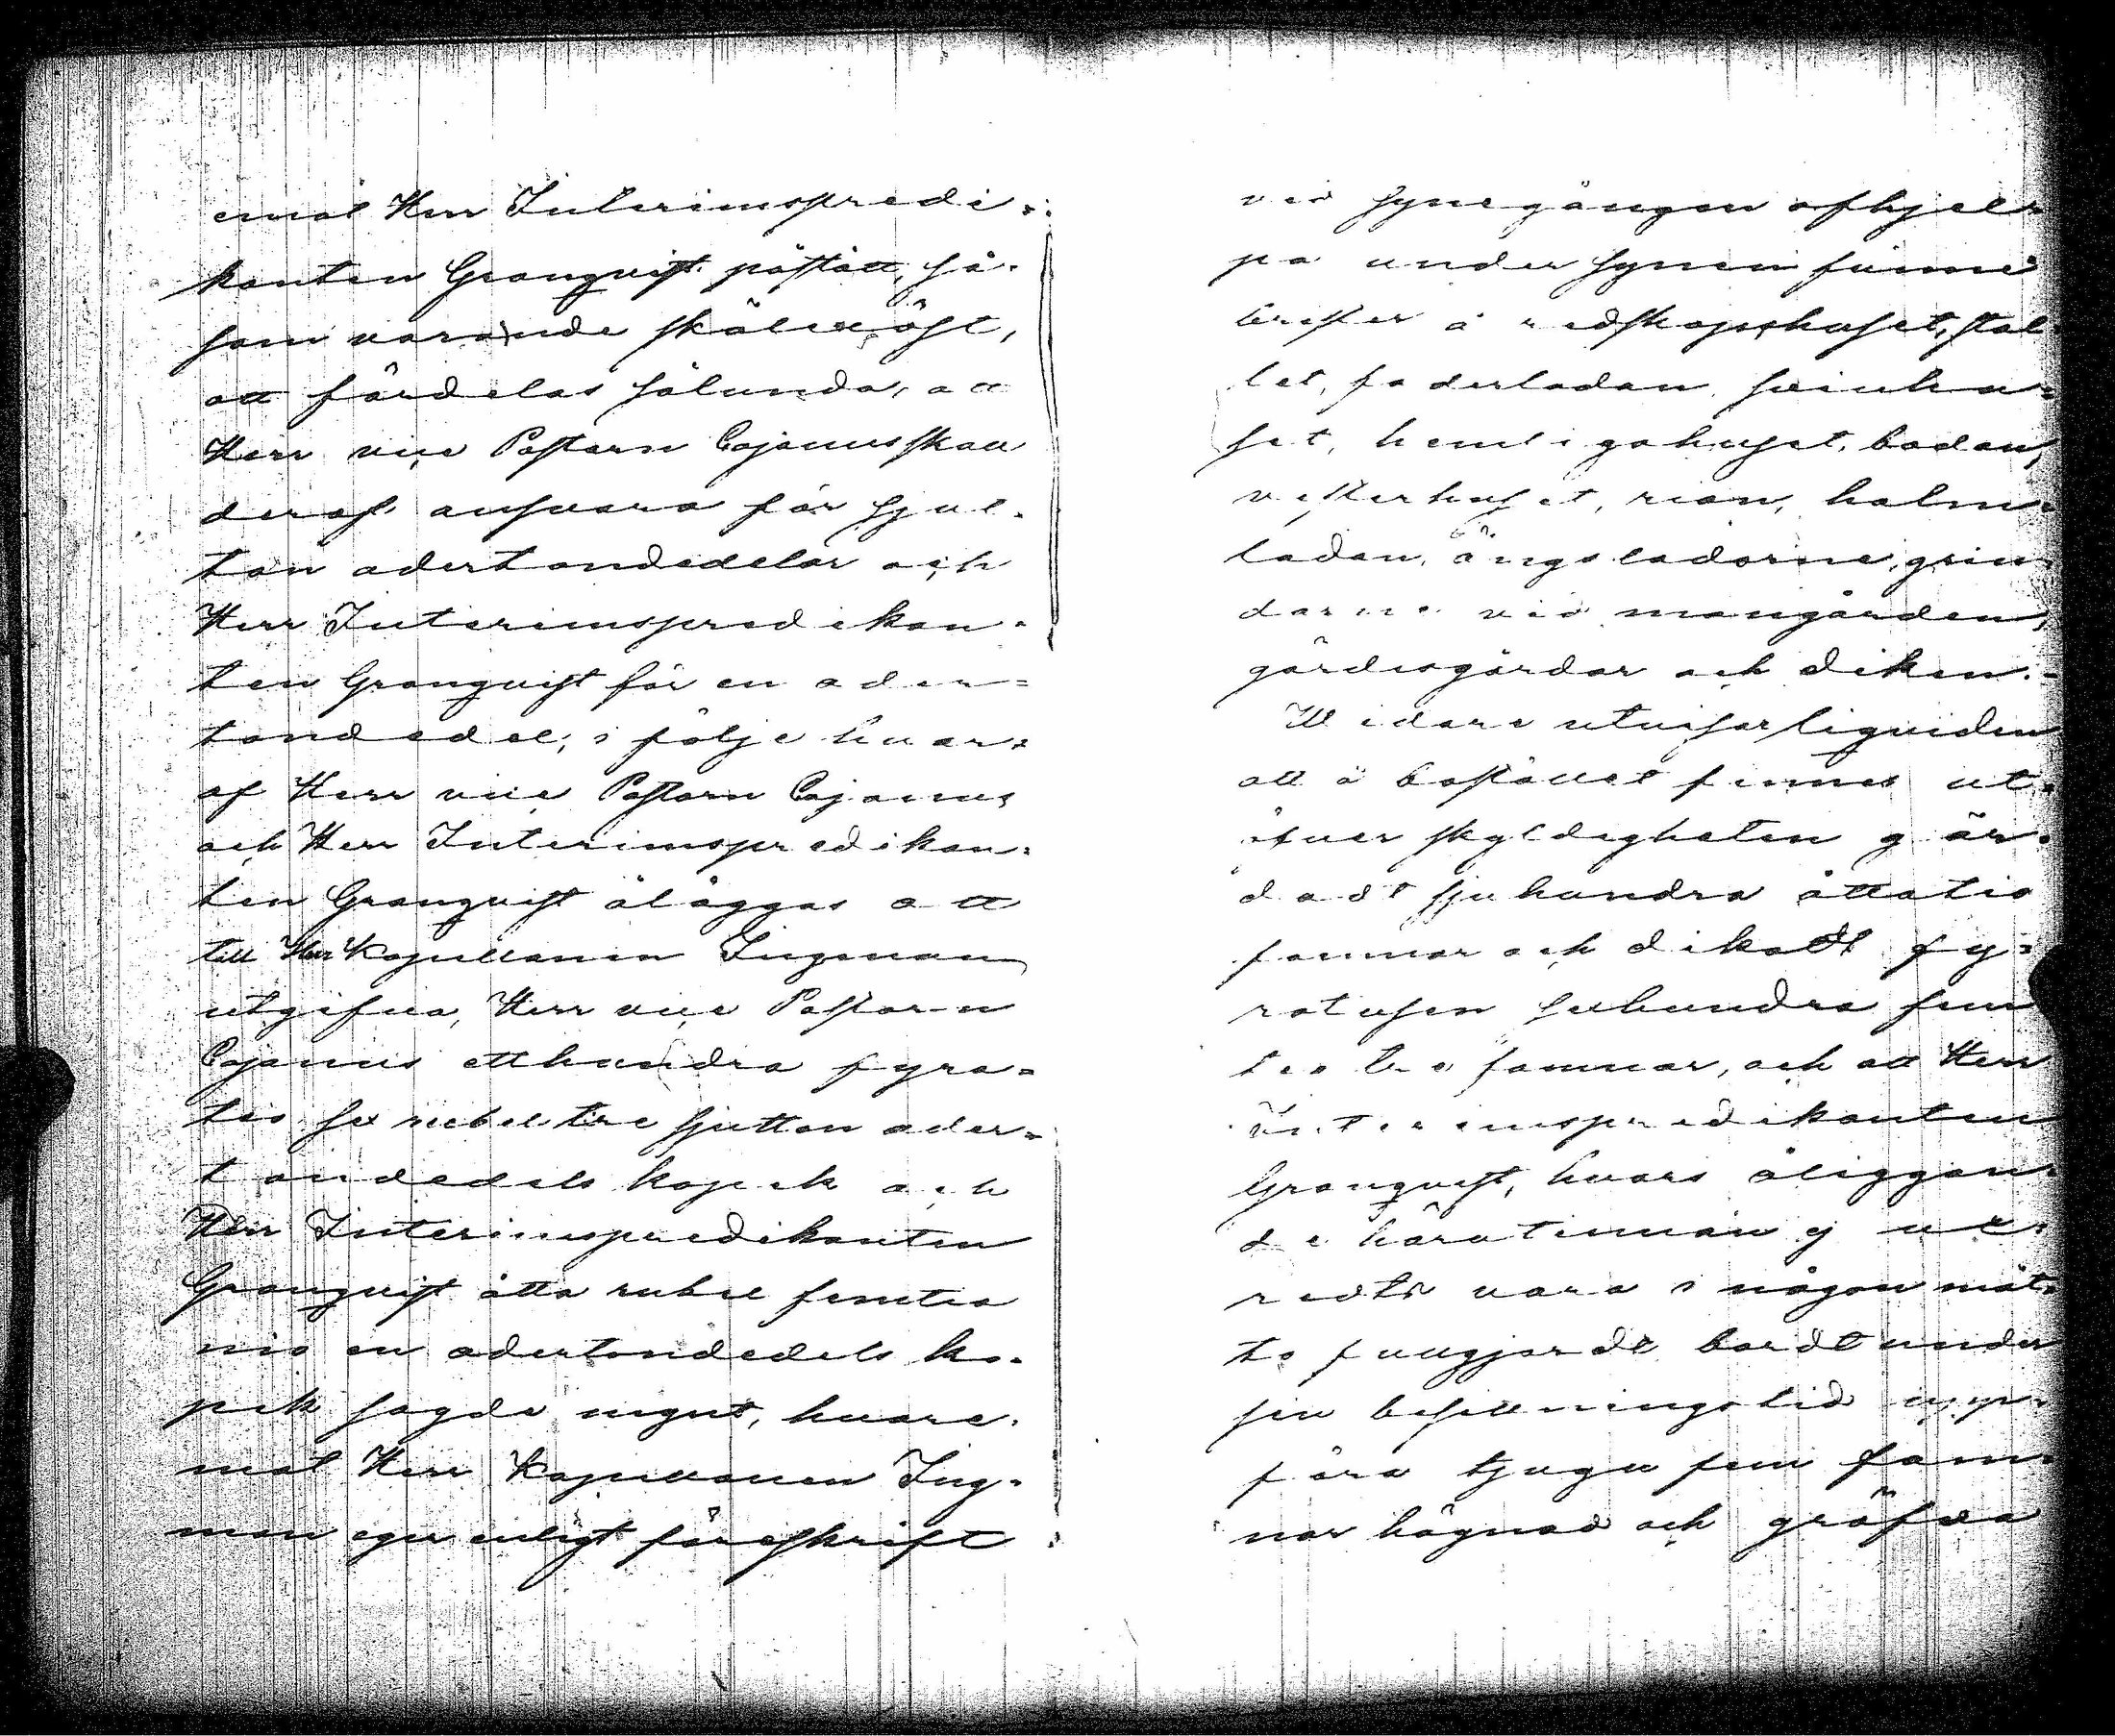 emot Herr Interimspredi-
kanten Granqvist påstått, så-
som varande skälelöst,
att fördelas sålunda, att
Herr vice Pastorn Cajanus skall
deraf ansvara för sjut-
ton adertondedelar och
Herr Interimspredikan-
ten Granqvist för en ader=
tondedel; i följe hvar-
af Herr vice Pastorn Cajanus
och Herr Interimspredikan-
ten Granqvist åläggas att
till Herr Kapellanen Ingman
utgifva, Herr vice Pastorn
Cajanus etthundra fyra=
tio sex rubel tre sjutton ader=
tondedels kopek och
Herr Interimspredikanten
Granqvist åtta rubel femtio
nio en adertondedels ko-
pek sagde mynt, hvare-
mot Herr Kapellanen Ing-
man eger enligt föreskrift
vid synegången afhjel-
pa under synen funne
brister å redskapshuset, stal-
let, foderladan, svinhu=
set, hemligahuset, boden,
vesterhuset, rian, halm=
ladan, ängsladorne, grin-
darne vid mangården,
gärdesgårdar och diken.-
Widare utvisar liqviden
att å bostället finnes ut-
öfver skyldigheten gär-
dadt sjuhundra åttatio
famnar och dikadt fy=
ratusen sexhundra fem
tio tre famnar, och att Herr
Interimspredikanten
Granqvist, hvars åliggan-
de härutinnan ej ut-
redts vara i någon måt-
to fullgjordt bordt under
sin besittningstid upp-
föra tjugu fem fam-
nar hägnad och gräfva